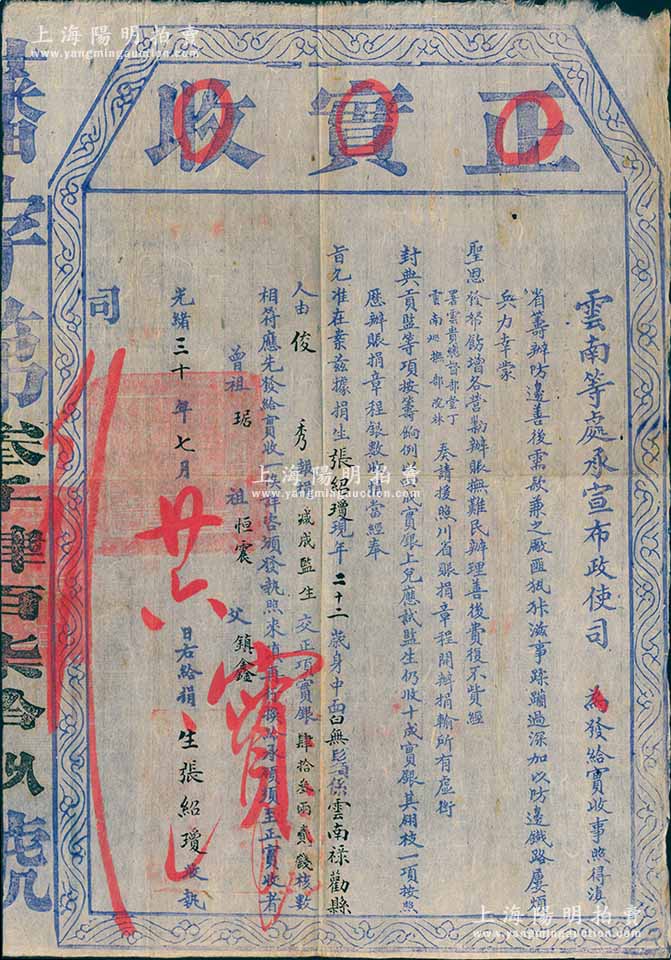 正實收
雲南等處承宣布政使司 為發給實收事照得滇
省籌辦防邊善後需款兼之厰匪
滋事蹂躪過深加以防邊鐵路屢煩
兵力幸蒙
聖恩發帑飭增各營勦辦賑撫難民辦理善後費復不貲經
署雲貴總督部堂丁
雲南巡撫部院林
奏請援照川省賑捐章程開辦捐輸所有虛銜
封典貢監等項按籌餉例
成實銀上兌應試監生仍收十成實銀其翎枝一項按照
歷辦賑捐章程銀數收
當經奉
旨允准在案茲據捐生張紹瓊現年二十二歲身中面白無鬚係雲南祿勸縣
人由俊秀報捐減成監生交正項實銀肆拾叁兩貳錢核數
相符應先發給實收
須至正實收者
曾祖琚 祖恒震 父鎮鑫
光緒三十年七月廿六日右給捐生張紹瓊收執
司
字第叁千肆百柒拾玖號
上海陽明拍賣
www.yangmingauction.com
上海陽明拍賣
www.yangmingauction.com
上海陽明拍賣
www.yangmingauction.com